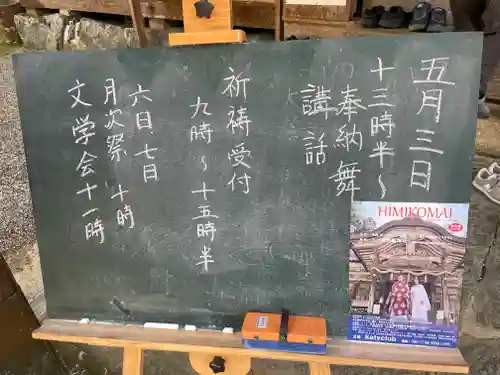 五月三日
十三時半〜
奉納舞
講話
祈祷受付
九時〜十五時半
六日、七日
月次祭 十時
文学会十一時
HIMIKOMAI
katyclub